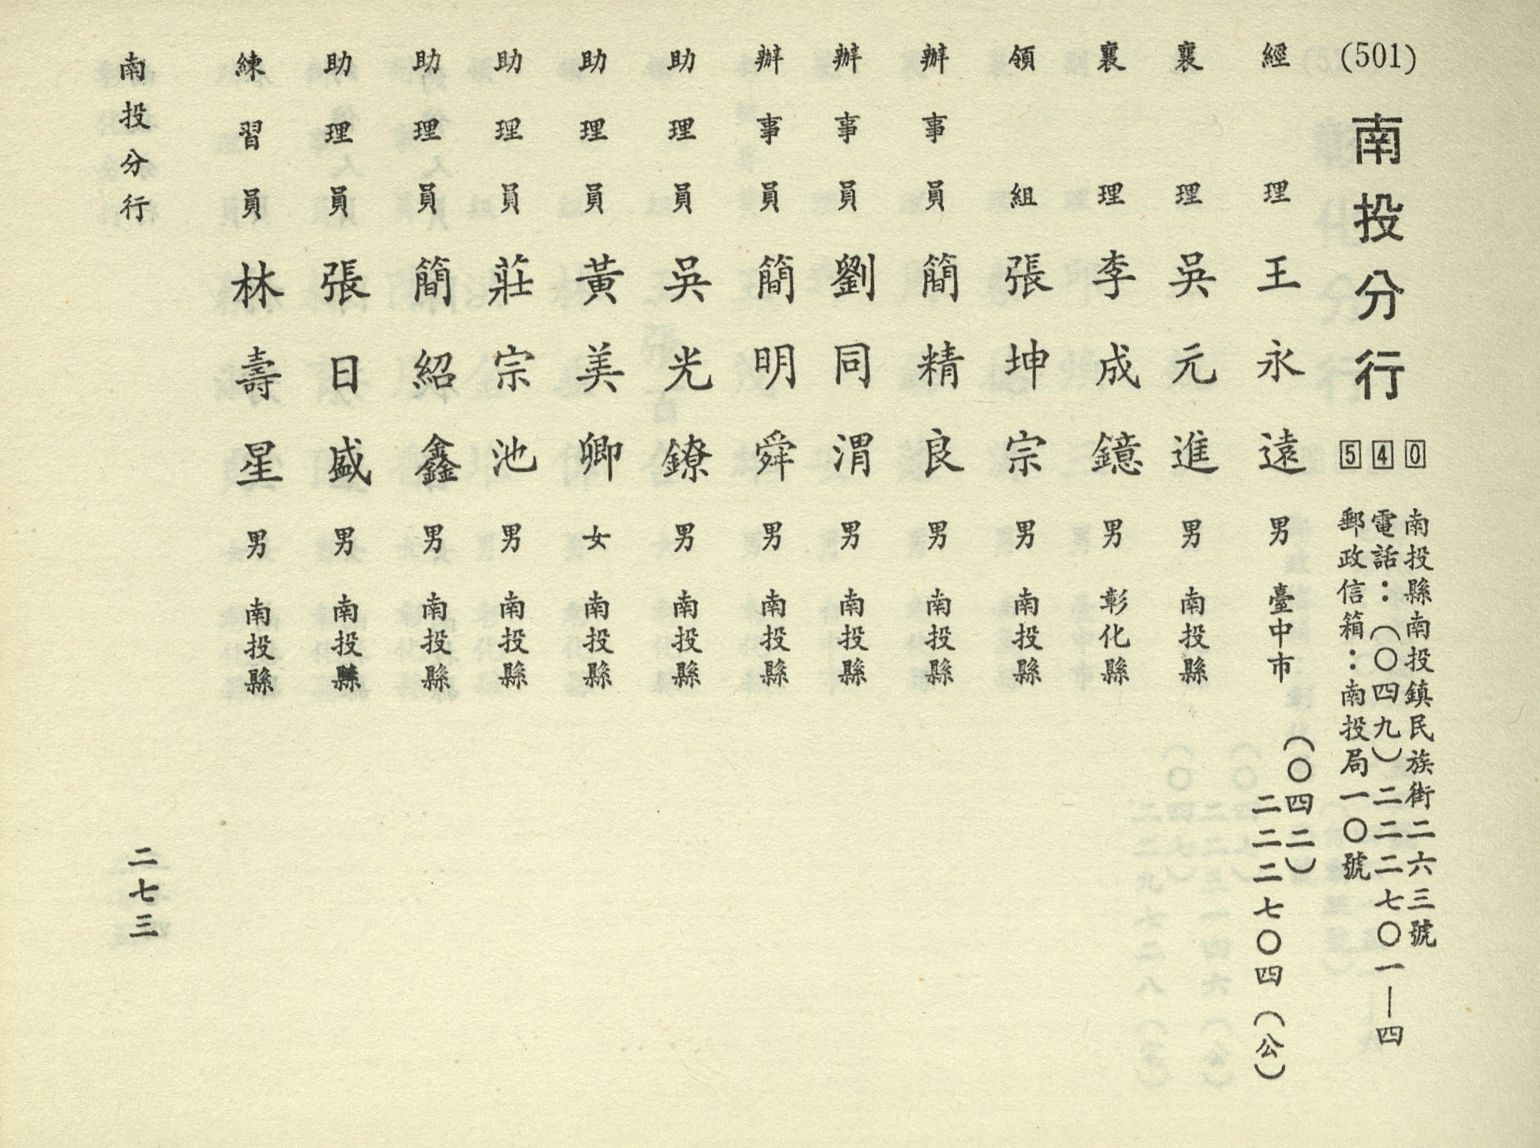 (501)
南投分行
540
南投縣南投鎮民族街二六三號
電話：(〇四九)二二二七〇一—四
郵政信箱：南投局一〇號
經理 王永遠 男 臺中市
(〇四二)
二二二七〇四(公)
襄理 吳元進 男 南投縣
襄理 李成鐿 男 彰化縣
領組 張坤宗 男 南投縣
辦事員 簡精良 男 南投縣
辦事員 劉同渭 男 南投縣
辦事員 簡明舜 男 南投縣
助理員 吳光鐐 男 南投縣
助理員 黃美卿 女 南投縣
助理員 莊宗池 男 南投縣
助理員 簡紹鑫 男 南投縣
助理員 張日盛 男 南投縣
練習員 林壽星 男 南投縣
南投分行
二七三